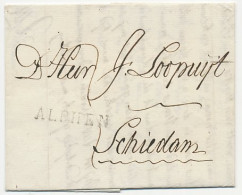 D'Heer J. Loopuijt
ALPHEN
Schiedam